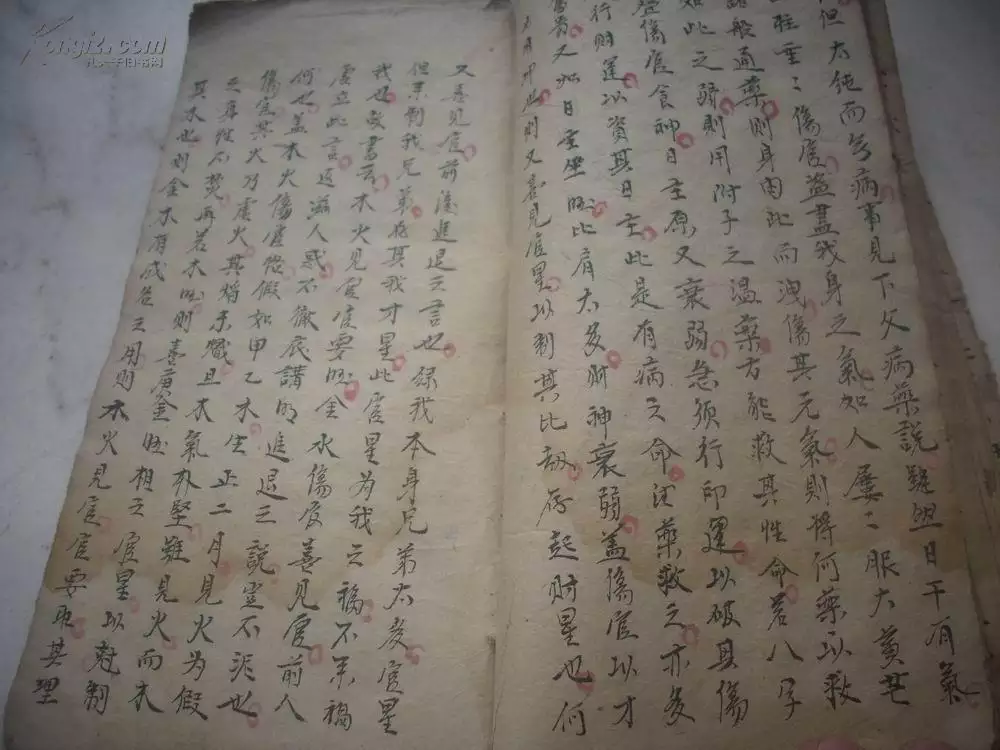 但太純而無病實見下文病藥說雖然日干有氣
柱重二傷官盜盡我身之氣如人屢二服大黃芒
諸般通藥則身因此而洩傷其元氣則將何藥以救
如此之弱則用附子之溫藥方能救其性命若八字
登傷官食神日主原又衰弱急須行印運以破其傷
行財運以資其日主此是有病之命得藥救之亦多
富貴又如日主坐旺比肩太多財神衰弱蓋傷官以才
則又喜見官星以制其比劫存起財星也何
又喜見官前後進退之言也緣我本身兄弟太多官星
但來制我兄弟在其我才星此官星為我之福不來禍
我也故書云木火見官官要旺金水傷官喜見官前人
虛立此言遂滋人惑不徹底講明進退之說豈不泥也
何也蓋木火傷官格假如甲乙木生正二月見火為假
傷官其火乃虛火其焰未熾且木氣亦堅雖見火而木
之真性不焚再若木旺則喜庚金旺相之官星以尅制
其木也則金木有成名之用則木火見官官要取其理
孔夫子旧书网